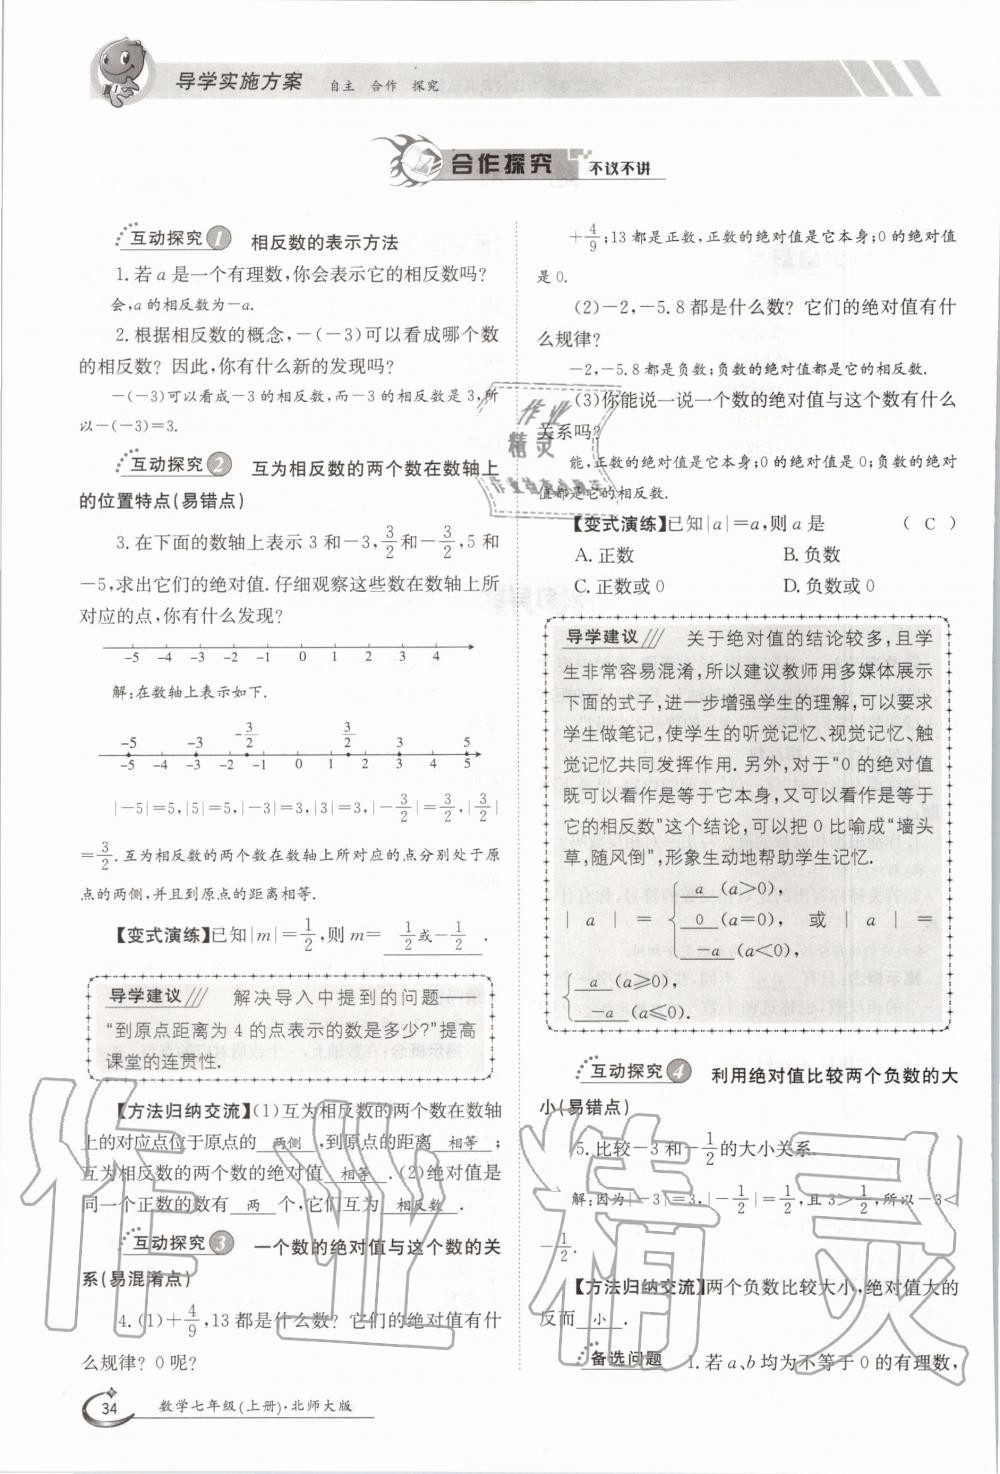 导学实施方案 自主 合作 探究
合作探究 不议不讲
互动探究1 相反数的表示方法
1.若a是一个有理数,你会表示它的相反数吗?
会,a的相反数为-a.
2.根据相反数的概念,-(-3)可以看成哪个数
的相反数? 因此,你有什么新的发现吗?
-(-3)可以看成-3的相反数,而-3的相反数是3,所
以-(-3)=3.
互动探究2 互为相反数的两个数在数轴上
的位置特点(易错点)
3.在下面的数轴上表示3和-3,3/2和-3/2,5和
-5,求出它们的绝对值.仔细观察这些数在数轴上所
对应的点,你有什么发现?
-5 -4 -3 -2 -1 0 1 2 3 4
解:在数轴上表示如下.
-5 -3 -3/2 3/2 3 5
-5 -4 -3 -2 -1 0 1 2 3 4 5
|-5|=5,|5|=5,|-3|=3,|3|=3,|-3/2|=3/2,|3/2|
=3/2.互为相反数的两个数在数轴上所对应的点分别处于原
点的两侧,并且到原点的距离相等.
【变式演练】已知|m|=1/2,则m= 1/2或-1/2 .
导学建议 解决导入中提到的问题——
“到原点距离为4的点表示的数是多少?”提高
课堂的连贯性.
【方法归纳交流】(1)互为相反数的两个数在数轴
上的对应点位于原点的 两侧 ,到原点的距离 相等 ;
互为相反数的两个数的绝对值 相等 .(2)绝对值是
同一个正数的数有 两 个,它们互为 相反数 .
互动探究3 一个数的绝对值与这个数的关
系(易混淆点)
4.(1)+4/9,13都是什么数? 它们的绝对值有什
么规律? 0呢?
+4/9;13都是正数,正数的绝对值是它本身;0的绝对值
是0.
(2)-2,-5.8都是什么数? 它们的绝对值有什
么规律?
-2,-5.8都是负数;负数的绝对值都是它的相反数.
(3)你能说一说一个数的绝对值与这个数有什么
关系吗?
能,正数的绝对值是它本身;0的绝对值是0;负数的绝对
值都是它的相反数.
【变式演练】已知|a|=a,则a是 ( C )
A.正数 B.负数
C.正数或0 D.负数或0
导学建议 关于绝对值的结论较多,且学
生非常容易混淆,所以建议教师用多媒体展示
下面的式子,进一步增强学生的理解,可以要求
学生做笔记,使学生的听觉记忆、视觉记忆、触
觉记忆共同发挥作用.另外,对于“0的绝对值
既可以看作是等于它本身,又可以看作是等于
它的相反数”这个结论,可以把0比喻成“墙头
草,随风倒”,形象生动地帮助学生记忆.
a (a>0),
|a|= 0 (a=0), 或 |a|=
-a (a<0),
a (a≥0),
-a (a≤0).
互动探究4 利用绝对值比较两个负数的大
小(易错点)
5.比较-3和-1/2的大小关系.
解:因为|-3|=3,|-1/2|=1/2,且3>1/2,所以-3<
-1/2.
【方法归纳交流】两个负数比较大小,绝对值大的
反而 小 .
备选问题 1.若a、b均为不等于0的有理数,
34 数学七年级(上册)·北师大版
作业精灵
作业
精灵